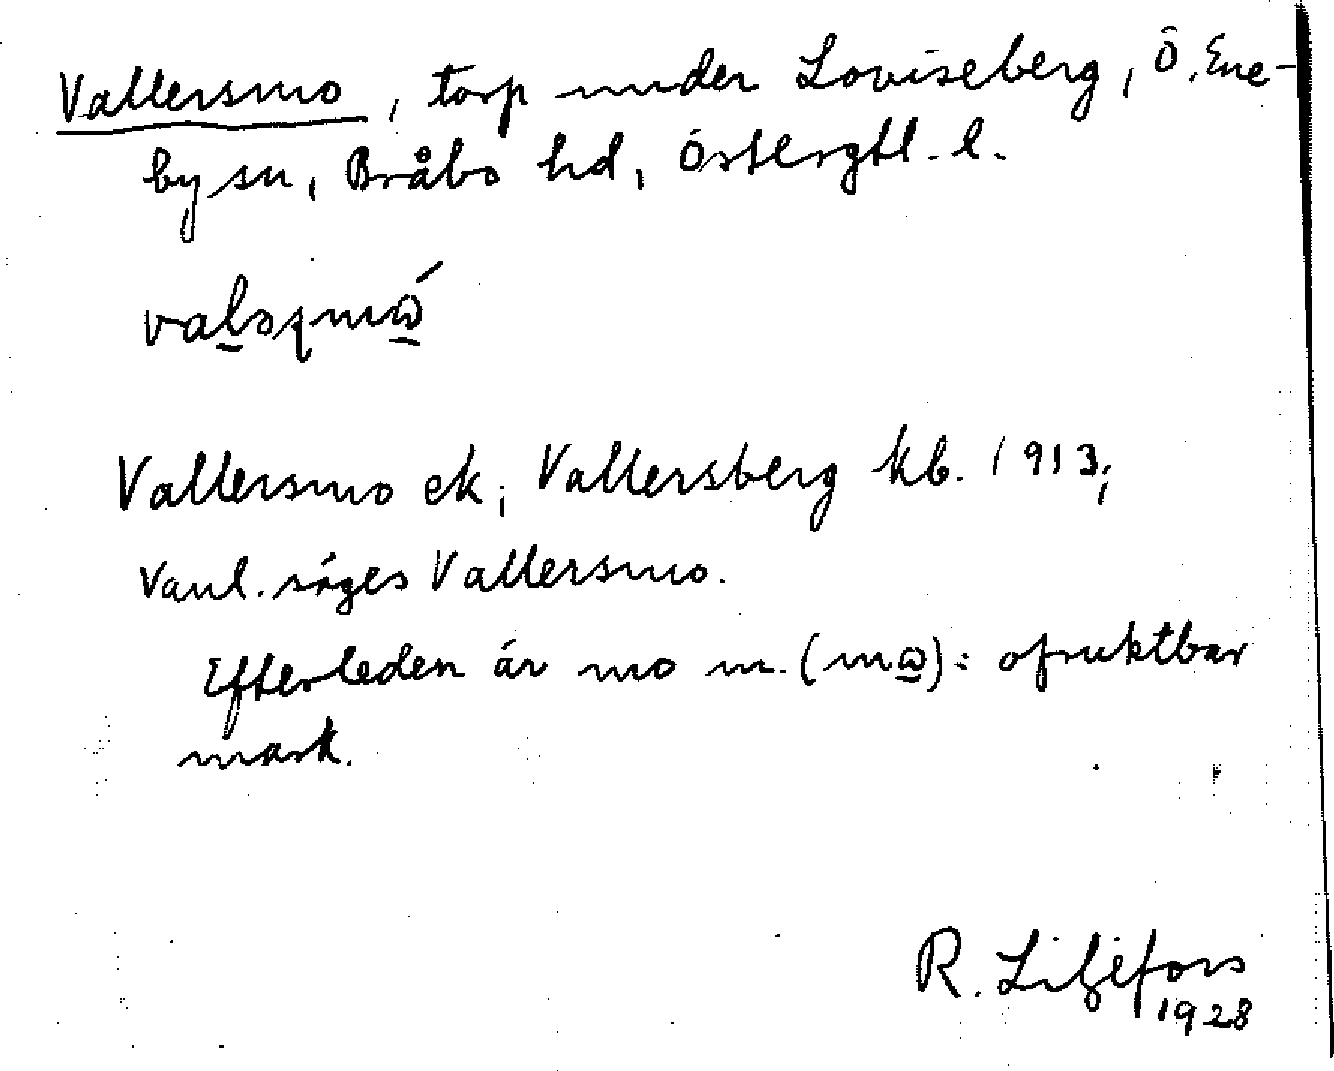 Vallersmo, torp under Loviseberg, Ö. Ene-
by sn, Bråbo hd, Östergtl. l.
Vallersmo ek; Vallersberg kb. 1913;
Vanl. säges Vallersmo.
Efterleden är mo m. (mɷ): ofruktbar
mark.
R. Liljefors
1928